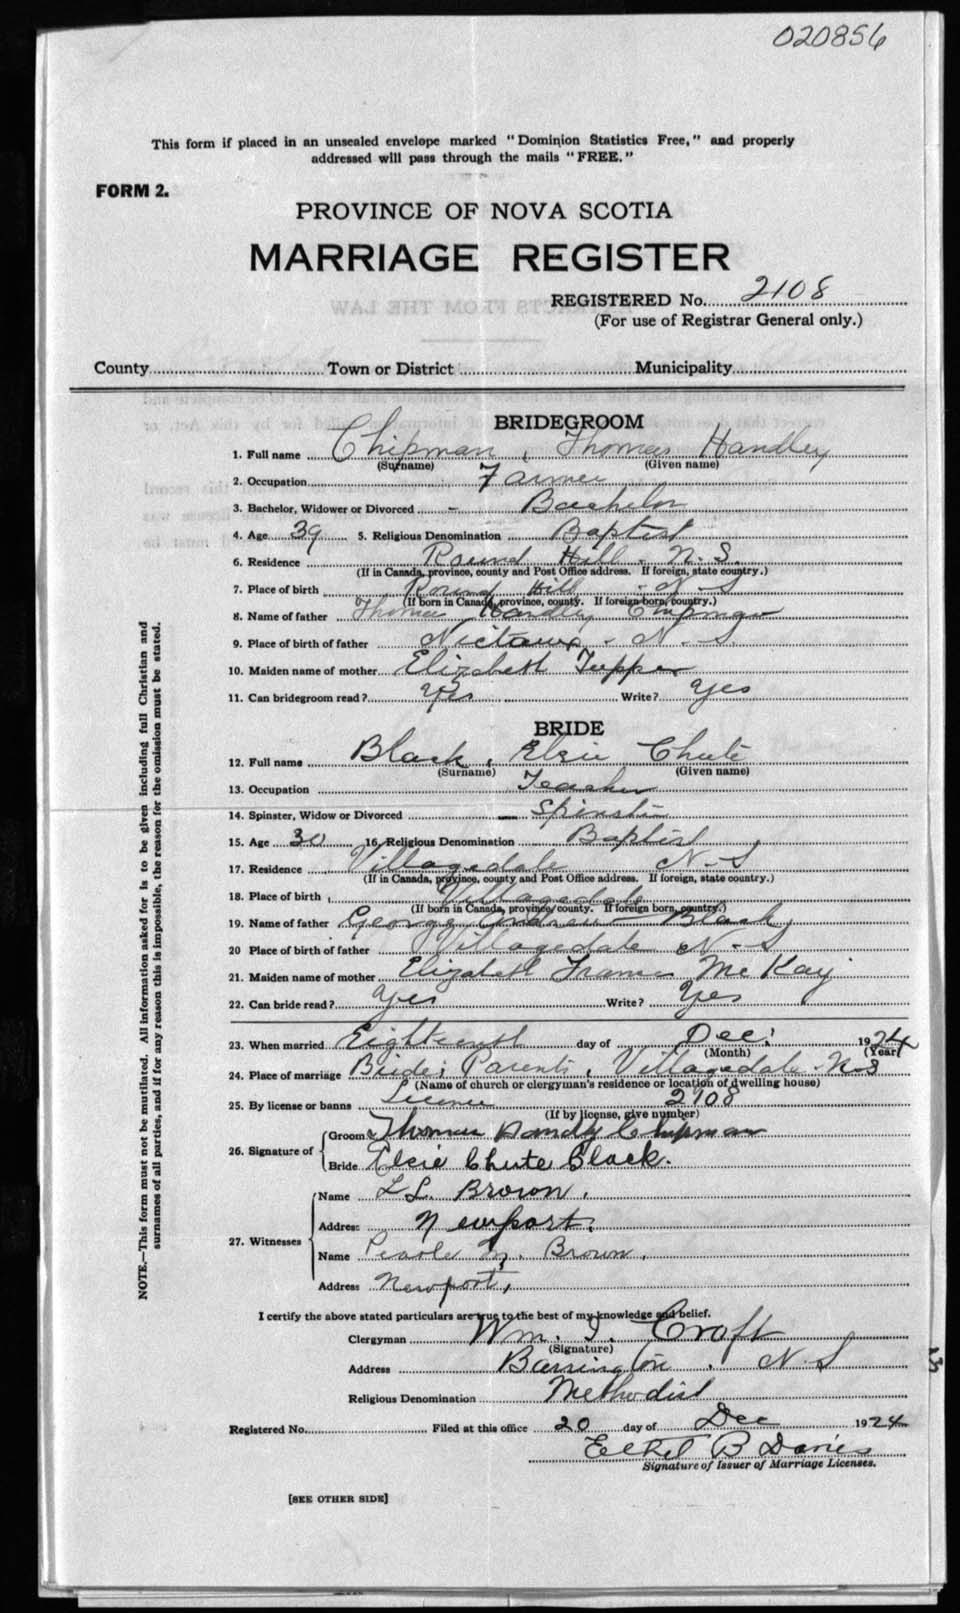 020856
This form if placed in an unsealed envelope marked "Dominion Statistics Free," and properly
addressed will pass through the mails "FREE."
FORM 2.
PROVINCE OF NOVA SCOTIA
MARRIAGE REGISTER
REGISTERED No. 2108
(For use of Registrar General only.)
County Town or District Municipality
BRIDEGROOM
1. Full name Chipman, Thomas Handley
(Surname) (Given name)
2. Occupation Farmer
3. Bachelor, Widower or Divorced - Bachelor
4. Age 39 5. Religious Denomination Baptist
6. Residence Round Hill. N.S.
(If in Canada, province, county and Post Office address. If foreign, state country.)
7. Place of birth Round Hill - N-S
(If born in Canada, province, county. If foreign born, country.)
8. Name of father Thomas Handley Chipman
9. Place of birth of father Nictaux - N-S
10. Maiden name of mother Elizabeth Tupper
11. Can bridegroom read? Yes Write? Yes
BRIDE
12. Full name Black, Elsie Chute
(Surname) (Given name)
13. Occupation Teacher
14. Spinster, Widow or Divorced - Spinster
15. Age 30 16. Religious Denomination Baptist
17. Residence Villagedale N-S
(If in Canada, province, county and Post Office address. If foreign, state country.)
18. Place of birth Villagedale
(If born in Canada, province, county. If foreign born, country.)
19. Name of father George Andrew Black
20 Place of birth of father Villagedale N-S
21. Maiden name of mother Elizabeth Frances McKay
22. Can bride read? Yes Write? Yes
23. When married Eighteenth day of Dec: 1924
(Month) (Year)
24. Place of marriage Brides Parents, Villagedale N-S
(Name of church or clergyman's residence or location of dwelling house)
25. By license or banns License 2108
(If by license, give number)
26. Signature of { Groom Thomas Handly Chipman
Bride Elsie Chute Black.
27. Witnesses { Name L L. Brown.
Address Newport.
Name Pearle M. Brown.
Address Newport,
I certify the above stated particulars are true to the best of my knowledge and belief.
Clergyman Wm. I. Croft
(Signature)
Address Barrington. N-S
Religious Denomination Methodist
Registered No. Filed at this office 20 day of Dec 1924
Ethel B Davies
Signature of Issuer of Marriage Licenses.
[SEE OTHER SIDE]
NOTE.—This form must not be mutilated. All information asked for is to be given including full Christian and
surnames of all parties, and if for any reason this is impossible, the reason for the omission must be stated.